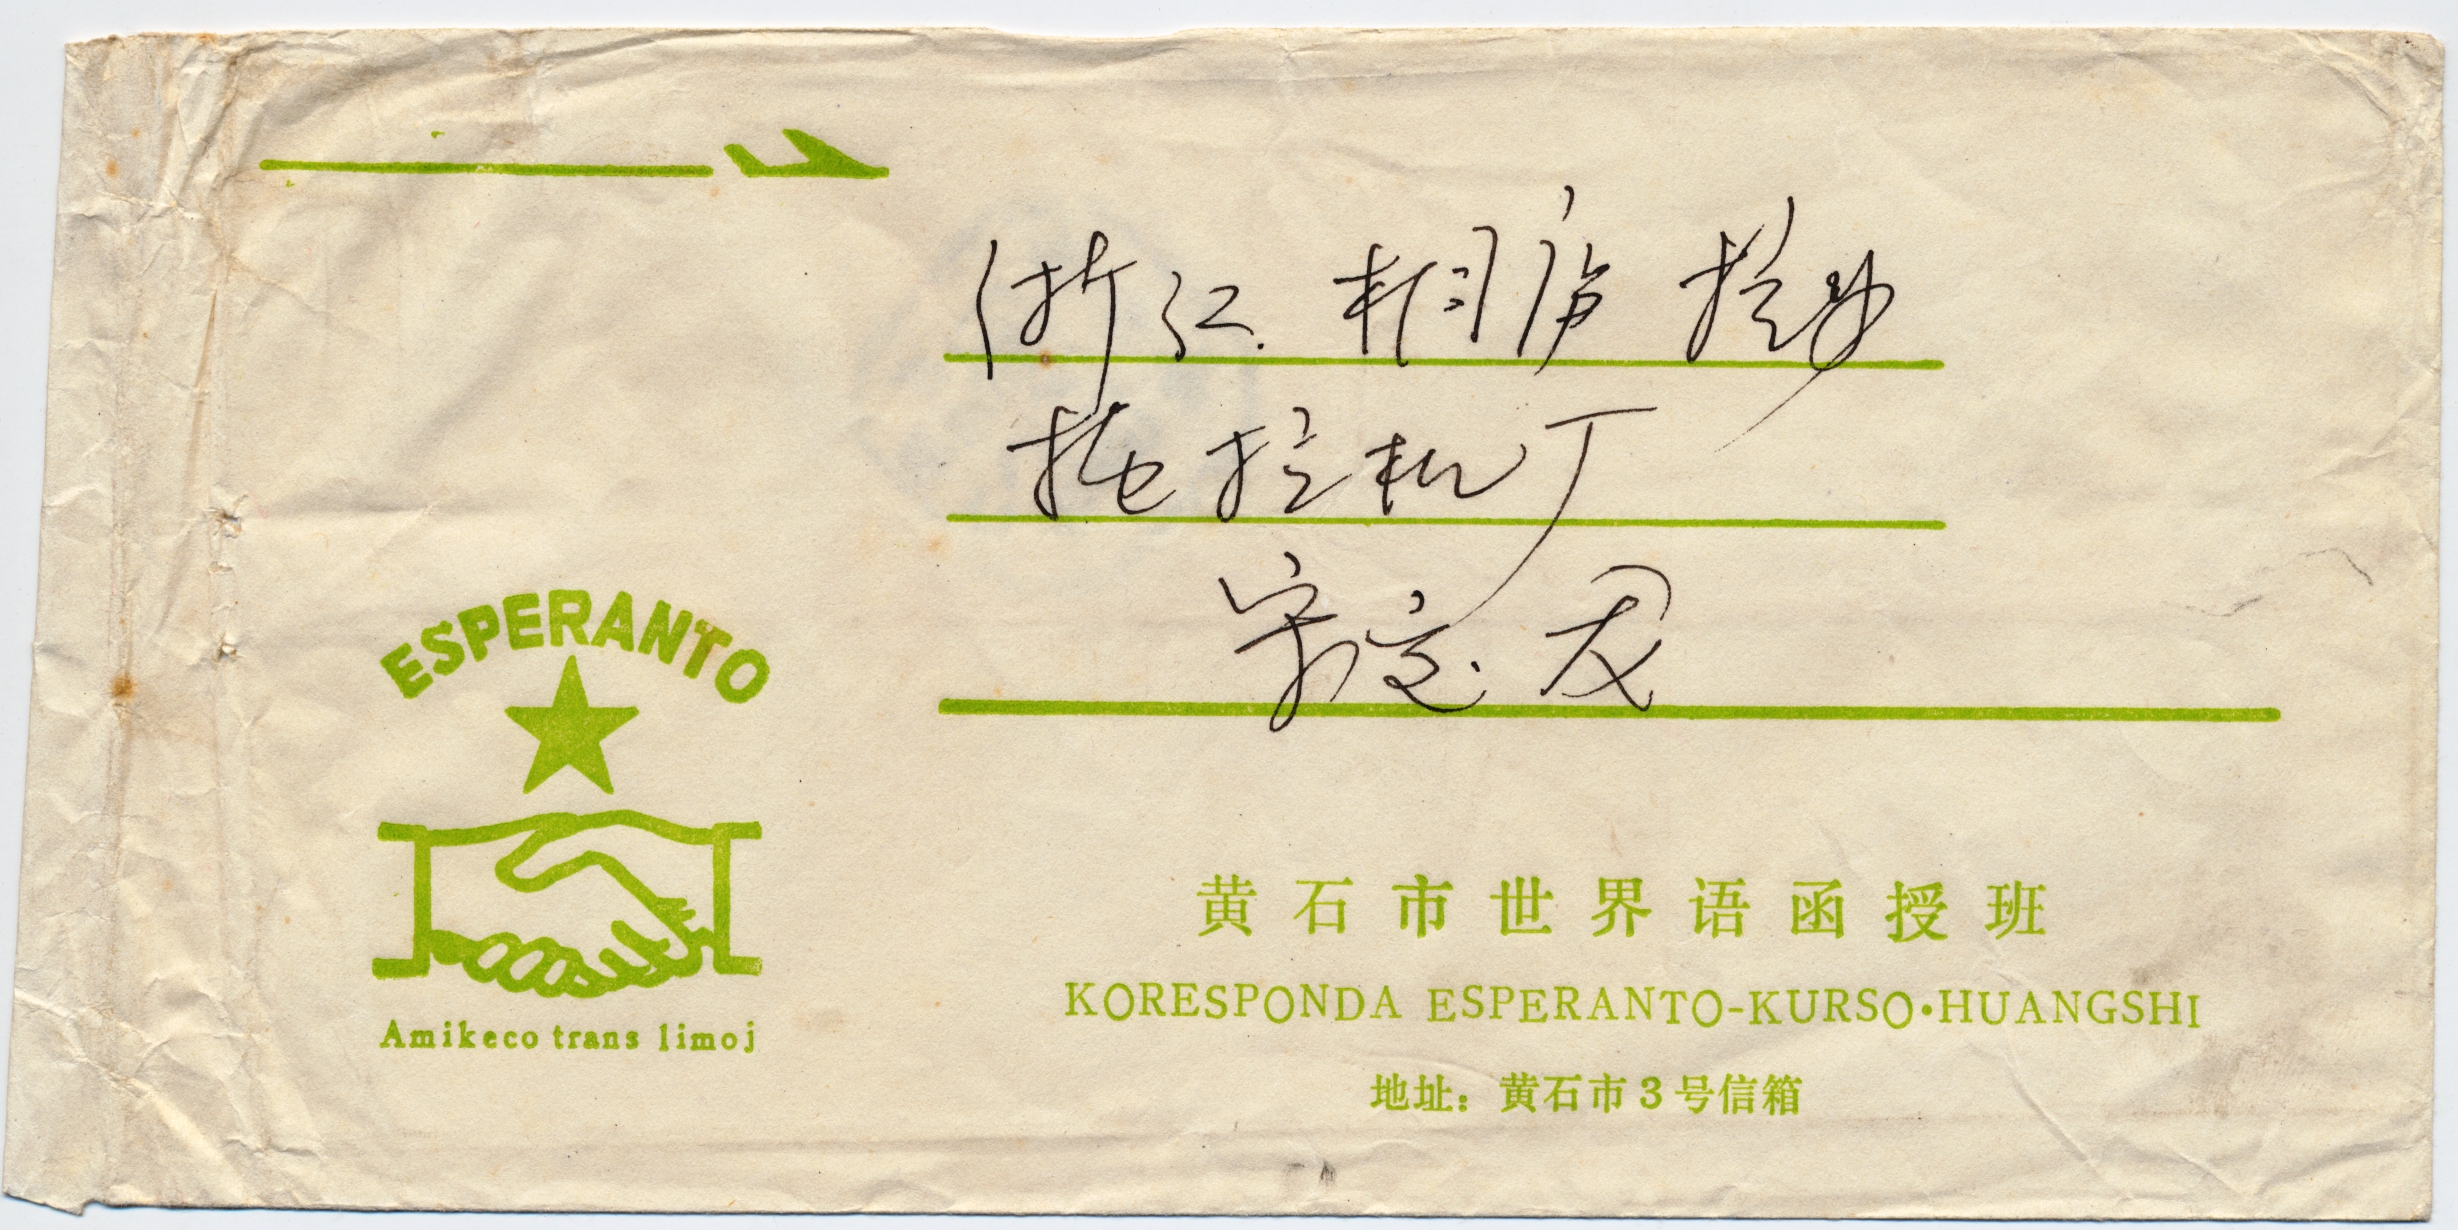 浙江.桐庐
拖拉机厂
宋定
ESPERANTO
Amikeco trans limoj
黄石市世界语函授班
KORESPONDA ESPERANTO-KURSO•HUANGSHI
地址：黄石市3号信箱